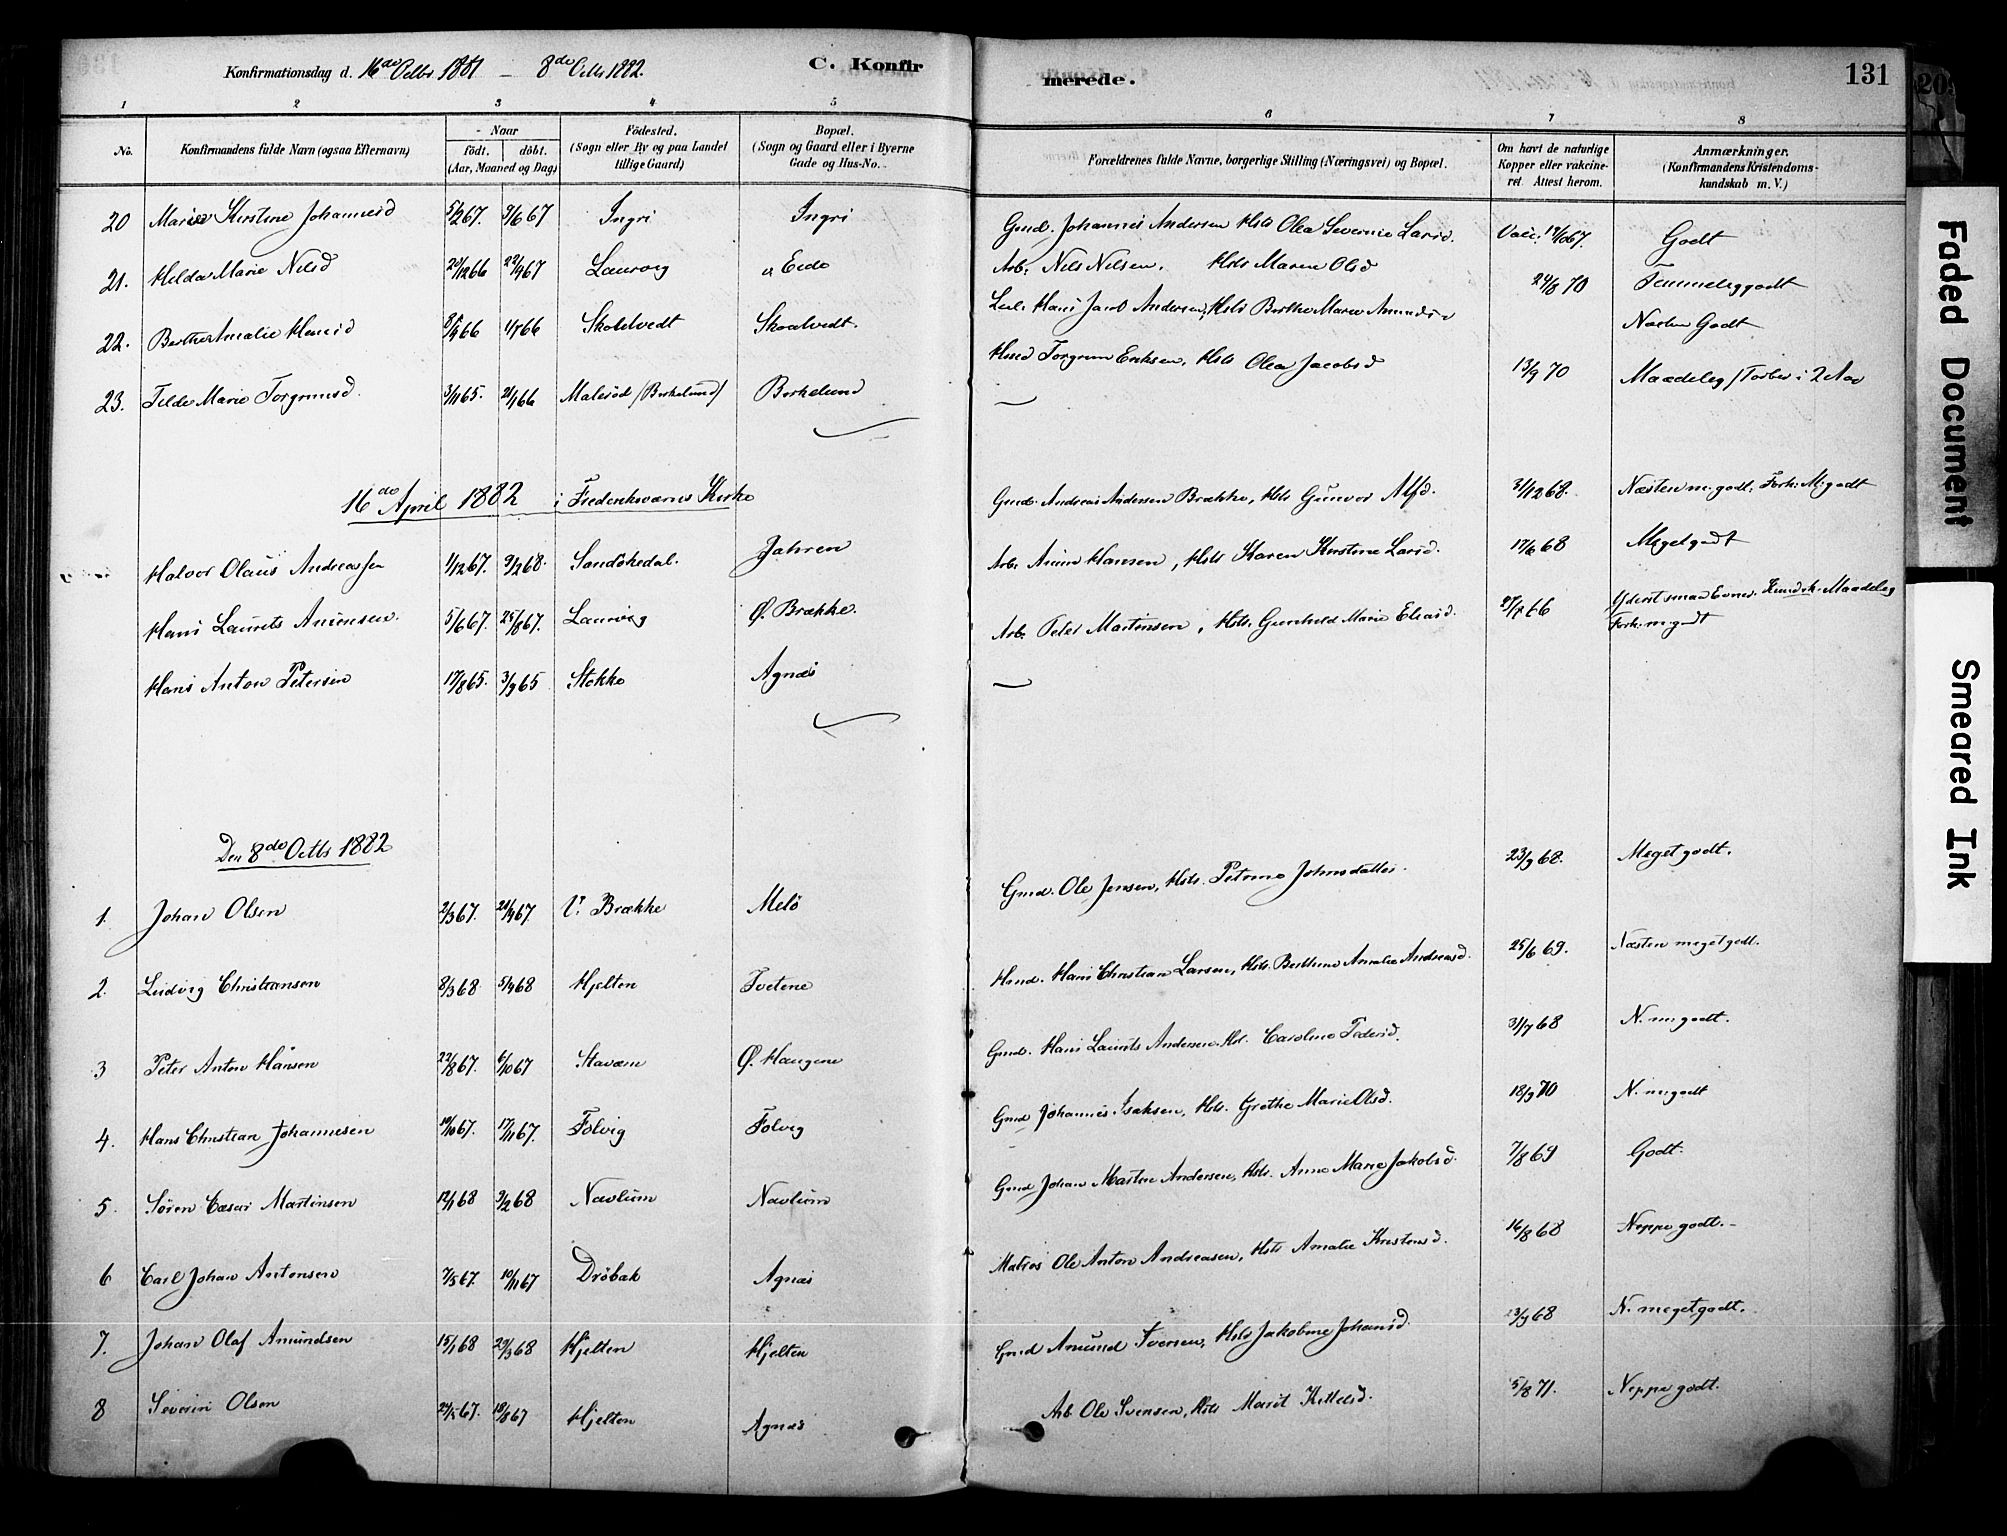 Konfirmationsdag d. 16de Octbr 1881 – 8de Octb 1882. C. Konfirmerede. 131
1 2 3 4 5 6 7 8
No. Konfirmandens fulde Navn (ogsaa Efternavn) Naar födt. döbt. (Aar, Maaned og Dag) Födested. (Sogn eller By og paa Landet tillige Gaard) Bopæl. (Sogn og Gaard eller i Byerne Gade og Hus-No. Forældrenes fulde Navne, borgerlige Stilling (Næringsvei) og Bopæl. Om havt de naturlige Kopper eller vakcineret. Attest herom. Anmærkninger. (Konfirmandens Kristendomskundskab m. V.)
20 Maria Kirstine Johannesd 5/2 67. 9/6 67 Ingri Ingri Gmd. Johannes Andersen Hst. Olea Severine Larsd. Vacc. Godt
21. Helda Marie Nilsd 20/12 66 22/4 67 Laurvig Eede Arb. Nils Nilsen. Hst. Maren Olsd 24/8 70 Temmelig godt
22. Berthe Amalie Hansd Skolelvedt Skoalvedt. Hans Jacob Andersen, Hst. Berthe Marie Næsten Godt
23. Tilda Marie Torgrimsd. 3/11 65. 21/1 66 Malerød /Berkelund/ Berkelund Torgrim Eriksen, Hst. Olea Jacobsd 13/9 70 Maadelig
16de April 1882 i Frederiksværns Kirke
Halvor Olaus Andreassen 1/12 67. 9/2 68. Sandökedal. Jahren Gmd. Andreas Andersen Brække, Hst. Gunvor Alfd. 31/12 68. Næsten m. godt. Forh. M. godt
Hans Laurits Anionsen. 5/6 67. 25/8 67. Laurvig Ø. Brække. Arb. Hansen, Hst. Karen Kirstine Larsd. 17/6 68 Meget godt
Hans Anton Petersen 17/8 65. 3/9 65 Stokke Agnæs Arb. Peter Martinsen, Hst. Gunhild Marie Eliasd. Yderst smaa Evner. Kundsk. Maadelig Forh. m. godt
Den 8de Octb 1882
1. Johan Olsen 2/3 67. 28/4 67. V. Brække Melö Gmd. Ole Jensen, Hst. Petrine Johnsdatter. 23/9 68. Meget godt.
2. Ludvig Christiansen 8/3 68 5/4 68 Hjelten Tvetene Hans Christian Larsen, Hst. Amalie Andreasd. 25/6 69. Næsten meget godt.
3 Peter Anton Hansen 22/8 67. 6/10 67 Staværn Ø. Haugene Gmd. Hans Laurits Andersen. Hst. Caroline Pedersd. 31/7 68 N. m. godt.
4. Hans Christian Johannesen 19/10 67. 17/11 67. Folvig Folvig Gmd Johannes Isaksen, Hst. Grethe Marie Olsd. 18/9 70 N. m. godt
5. Søren Cæsar Martinsen 12/1 68 9/2 68 Navlum Navlum Gmd Johan Martin Andersen, Hst. Anne Marie Jakobsd. 7/8 69 Godt.
6 Carl Johan Antonsen 7/5 67. 10/11 67 Dröbak Agnæs Matros Ole Anton Andreasen, Hst. Amalie Kristensd. 16/8 68 Neppe godt.
7. Johan Olaf Amundsen 15/1 68 22/3 68 Hjelten Hjelten Gmd Amund Iversen, Hst. Jakobine Johansd. 23/9 68 N. meget godt.
8 Severin Olsen 27/5 67. 18/8 67 Hjelten Agnæs Arb. Ole Svensen, Hst. Marit Kittelsd. 5/8 71. Neppe godt.
Faded Document
Smeared Ink